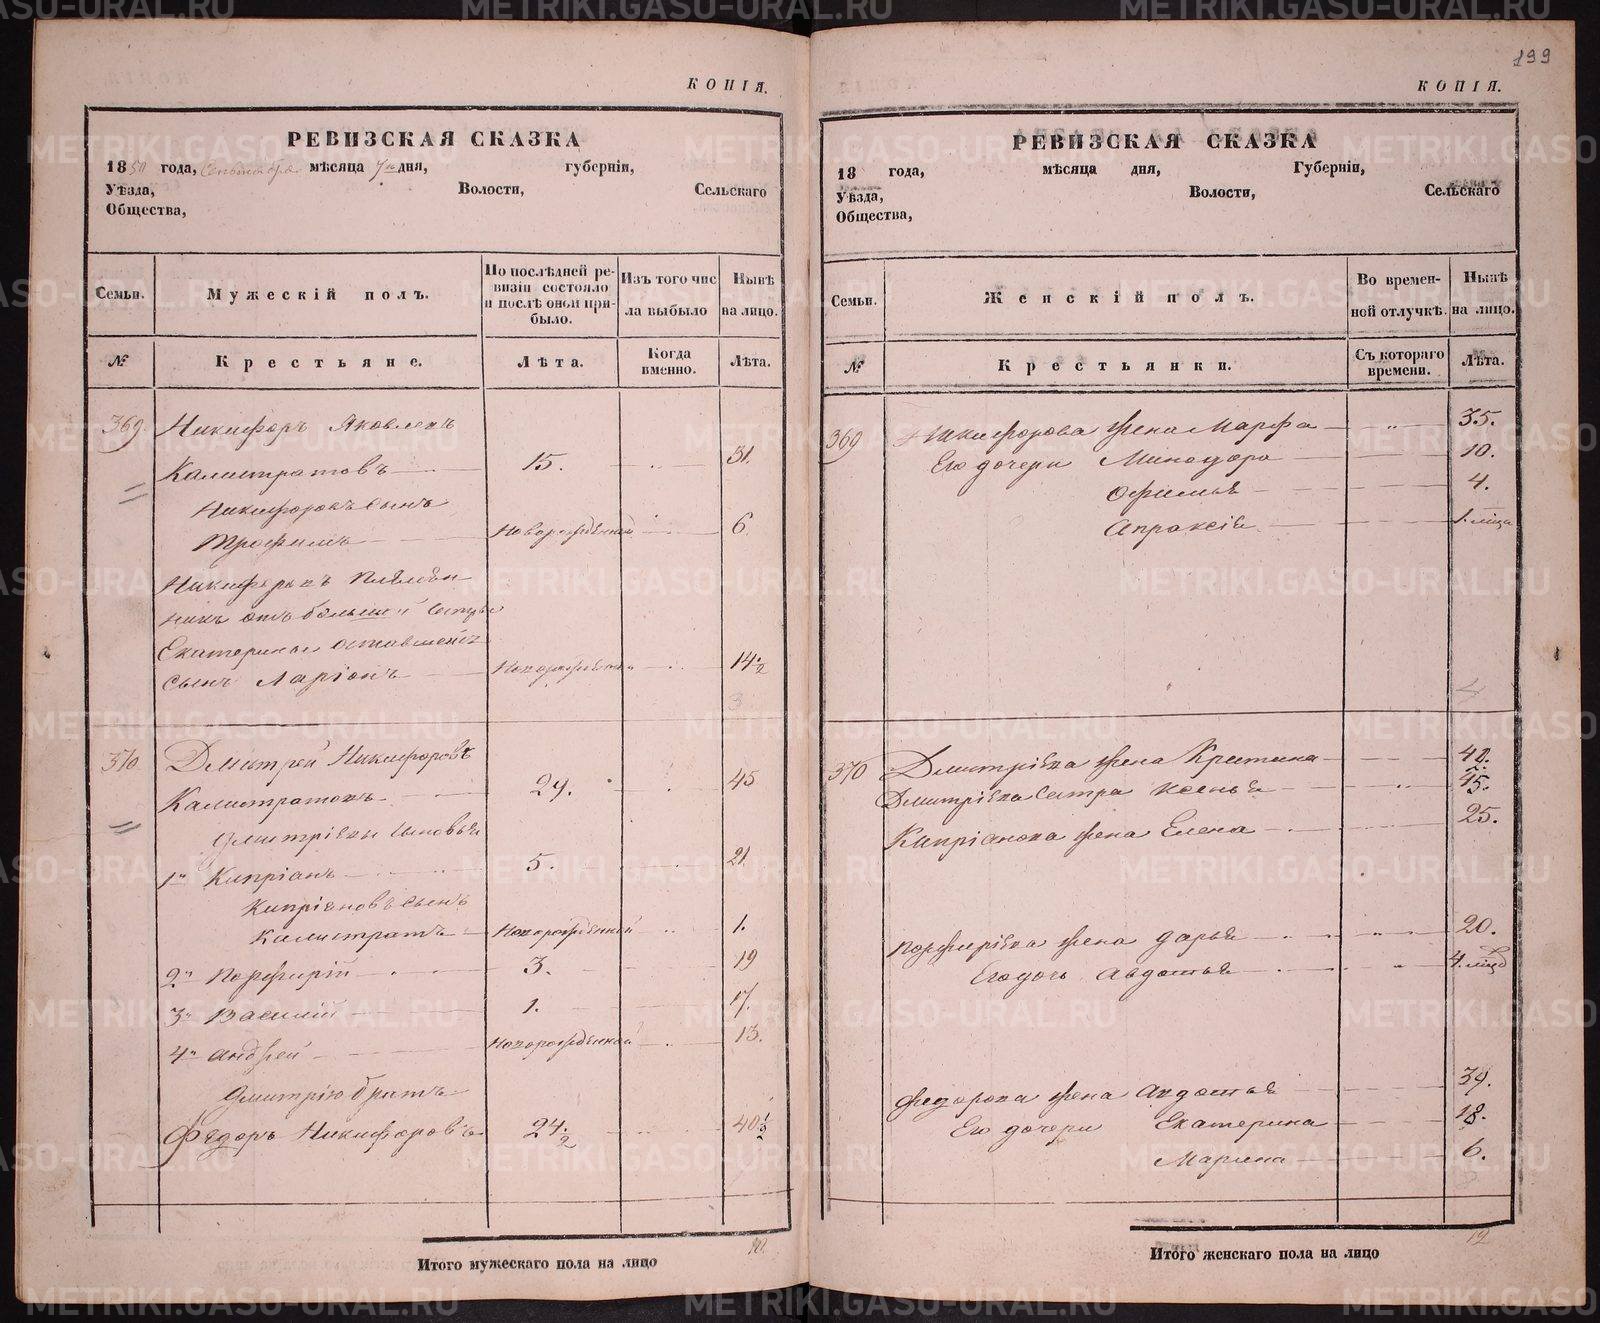 199
КОПІЯ.
РЕВИЗСКАЯ СКАЗКА
1850 года, Сентября мѣсяца 7 дня, губерніи,
Уѣзда, Волости, Сельскаго
Общества,
Семьи. Мужескій полъ. По послѣдней ревизіи состояло и послѣ оной прибыло. Изъ того числа выбыло Нынѣ на лицо.
№ Крестьяне. Лѣта. Когда именно. Лѣта.
369. Никифоръ Яковлевъ
Калистратовъ 15. 31.
Никифоровъ сынъ
Трофимъ Новорожденной 6.
Никифоровъ племян
никъ отъ большей сестры
Екатерины оставленъ
сынъ Ларіонъ Новорожденной 14 1/2
3
370 Дмитрей Никифоровъ
Калистратовъ 29. 45
Дмитріевы сыновья
1й Кипріанъ 5. 21.
Кипріановъ сынъ
Калистратъ Новорожденной 1.
2й Порфирій 3. 19
3й Василій 1. 17.
4й Андрей Новорожденной 13.
Дмитрію братъ
Федоръ Никифоровъ 24 1/2 40 1/2
Итого мужескаго пола на лицо 10
КОПІЯ.
РЕВИЗСКАЯ СКАЗКА
18 года, мѣсяца дня, Губерніи,
Уѣзда, Волости, Сельскаго
Общества,
Семьи. Женскій полъ. Во временной отлучкѣ. Нынѣ на лицо.
№ Крестьянки. Съ котораго времени. Лѣта.
369 Никифорова жена Марфа 35.
Его дочери Минодора 10.
Офимья 4.
Апраксія 1. мѣца
4
370 Дмитріева жена Кристина 42.
Дмитріева сестра Ксенья 45.
Кипріанова жена Елена 25.
Порфиріева жена Дарья 20.
Его дочь Авдотья 4. мѣца
Федорова жена Авдотья 39.
Его дочери Екатерина 18.
Марина 6.
Итого женскаго пола на лицо 12
METRIKI.GASO-URAL.RU